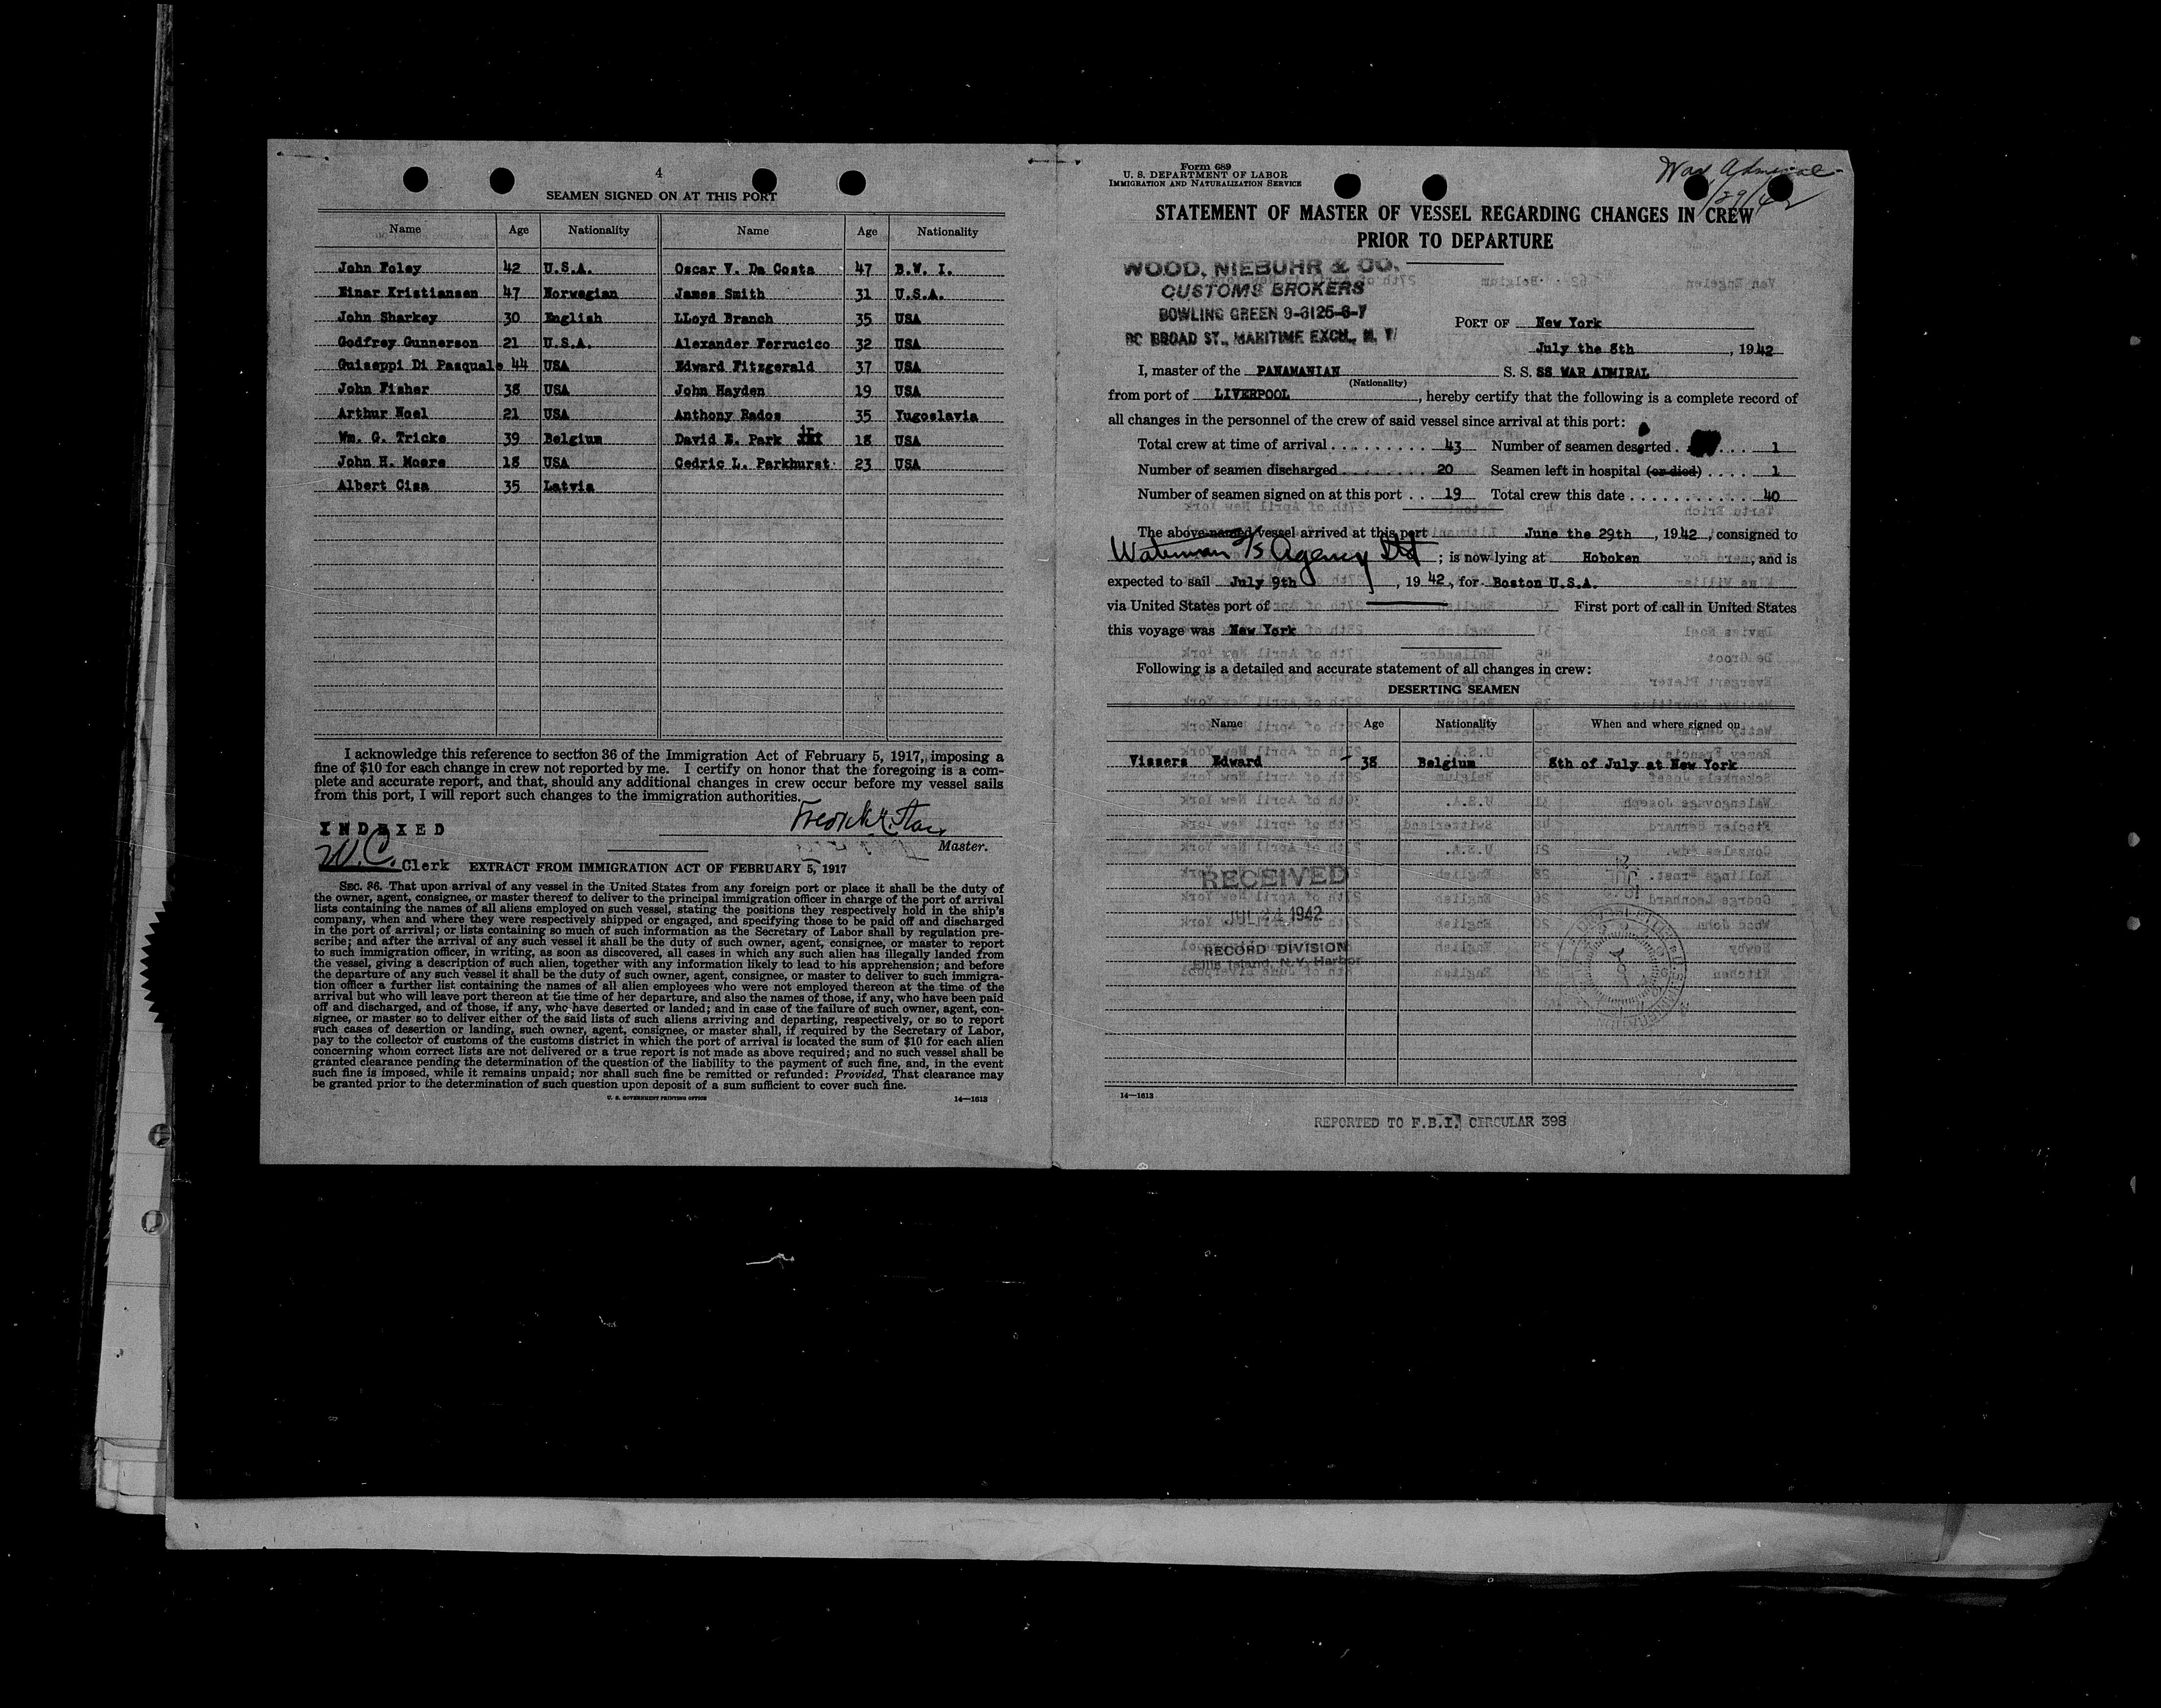 4
SEAMEN SIGNED ON AT THIS PORT
Name Age Nationality Name Age Nationality
John Foley 42 U.S.A. Oscar V. Da Costa 47 B.W. I.
Einar Kristiansen 47 Norwegian James Smith 31 U.S.A.
John Sharkey 30 English LLoyd Branch 35 USA
Godfrey Gunnerson 21 U.S.A. Alexander Ferrucico 32 USA
Guiseppi Di Pasquale 44 USA Edward Fitzgerald 37 USA
John Fisher 38 USA John Hayden 19 USA
Arthur Noel 21 USA Anthony Rados 35 Yugoslavia
Wm. G. Tricke 39 Belgium David E. Park jr. 18 USA
John H. Moere 18 USA Cedric L. Parkhurst 23 USA
Albert Cisa 35 Latvia
I acknowledge this reference to section 36 of the Immigration Act of February 5, 1917, imposing a
fine of $10 for each change in crew not reported by me. I certify on honor that the foregoing is a com-
plete and accurate report, and that, should any additional changes in crew occur before my vessel sails
from this port, I will report such changes to the immigration authorities.
INDEXED
Master.
W.C. Clerk EXTRACT FROM IMMIGRATION ACT OF FEBRUARY 5, 1917
SEC. 36. That upon arrival of any vessel in the United States from any foreign port or place it shall be the duty of
the owner, agent, consignee, or master thereof to deliver to the principal immigration officer in charge of the port of arrival
lists containing the names of all aliens employed on such vessel, stating the positions they respectively hold in the ship's
company, when and where they were respectively shipped or engaged, and specifying those to be paid off and discharged
in the port of arrival; or lists containing so much of such information as the Secretary of Labor shall by regulation pre-
scribe; and after the arrival of any such vessel it shall be the duty of such owner, agent, consignee, or master to report
to such immigration officer, in writing, as soon as discovered, all cases in which any such alien has illegally landed from
the vessel, giving a description of such alien, together with any information likely to lead to his apprehension; and before
the departure of any such vessel it shall be the duty of such owner, agent, consignee, or master to deliver to such immigra-
tion officer a further list containing the names of all alien employees who were not employed thereon at the time of the
arrival but who will leave port thereon at the time of her departure, and also the names of those, if any, who have been paid
off and discharged, and of those, if any, who have deserted or landed; and in case of the failure of such owner, agent, con-
signee, or master so to deliver either of the said lists of such aliens arriving and departing, respectively, or so to report
such cases of desertion or landing, such owner, agent, consignee, or master shall, if required by the Secretary of Labor,
pay to the collector of customs of the customs district in which the port of arrival is located the sum of $10 for each alien
concerning whom correct lists are not delivered or a true report is not made as above required; and no such vessel shall be
granted clearance pending the determination of the question of the liability to the payment of such fine, and, in the event
such fine is imposed, while it remains unpaid; nor shall such fine be remitted or refunded: Provided, That clearance may
be granted prior to the determination of such question upon deposit of a sum sufficient to cover such fine.
U. S. GOVERNMENT PRINTING OFFICE 14—1613
Form 689
U. S. DEPARTMENT OF LABOR
IMMIGRATION AND NATURALIZATION SERVICE
War Admiral
/29/42
STATEMENT OF MASTER OF VESSEL REGARDING CHANGES IN CREW
PRIOR TO DEPARTURE
WOOD, NIEBUHR & CO.
CUSTOMS BROKERS
BOWLING GREEN 9-3125-6-7
BROAD ST., MARITIME EXCH., N. Y.
PORT OF New York
July the 8th, 1942
I, master of the PANAMANIAN S. S. SS WAR ADMIRAL
(Nationality)
from port of LIVERPOOL, hereby certify that the following is a complete record of
all changes in the personnel of the crew of said vessel since arrival at this port:
Total crew at time of arrival . . . . . . . . . 43 Number of seamen deserted . . . . . 1
Number of seamen discharged . . . . . . . . 20 Seamen left in hospital (or died) . . . . 1
Number of seamen signed on at this port . . 19 Total crew this date . . . . . . . . . . . . 40
The above-named vessel arrived at this port June the 29th, 1942, consigned to
Waterman S/S Agency Ltd; is now lying at Hoboken, and is
expected to sail July 9th, 1942, for Boston U.S.A.
via United States port of First port of call in United States
this voyage was New York
Following is a detailed and accurate statement of all changes in crew:
DESERTING SEAMEN
Name Age Nationality When and where signed on
Vissers Edward 38 Belgium 8th of July at New York
RECEIVED
JUL 24 1942
RECORD DIVISION
Ellis Island, N.Y. Harbor
14—1613
REPORTED TO F.B.I. CIRCULAR 398